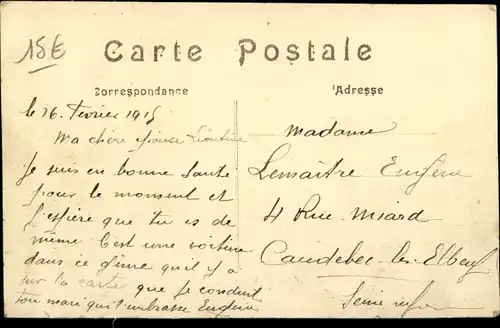 15€
Carte Postale
Correspondance
Adresse
le 26 Fevrier 1915
Ma chère épouse Léontine
Je suis en bonne santé
pour le moment et
j'espière que tu es de
même C'est une voiture
dans ce genre qu'il y a
sur la carte que je conduit
ton mari qui t'embrasse Eugène
Madame
Lemaître Eugène
4 Rue Miard
Caudebec les Elbeuf
Seine inf